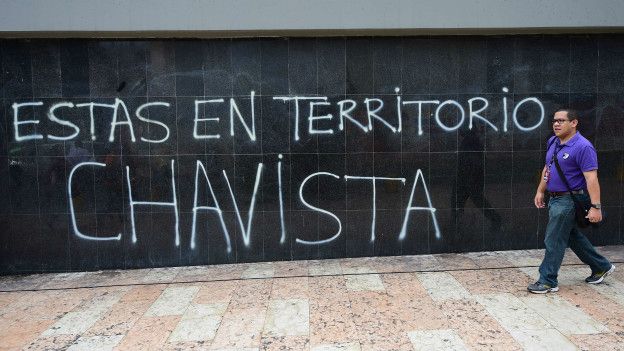 ESTAS EN TERRiTORiO
CHAViSTA